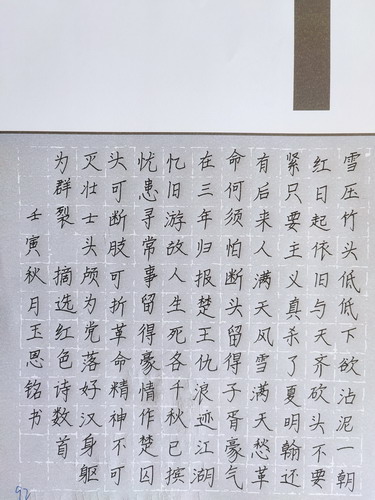 雪压竹头低低下欲沾泥一朝
红日起依旧与天齐砍头不要
紧只要主义真杀了夏明翰还
有后来人满天风雪满天愁革
命何须怕断头留得子胥豪气
在三年归报楚王仇浪迹江湖
忆旧游故人生死各千秋已摈
忧患寻常事留得豪情作楚囚
头可断肢可折革命精神不可
灭壮士头颅为党落好汉身躯
为群裂 摘选红色诗数首
壬寅秋月玉思铭书